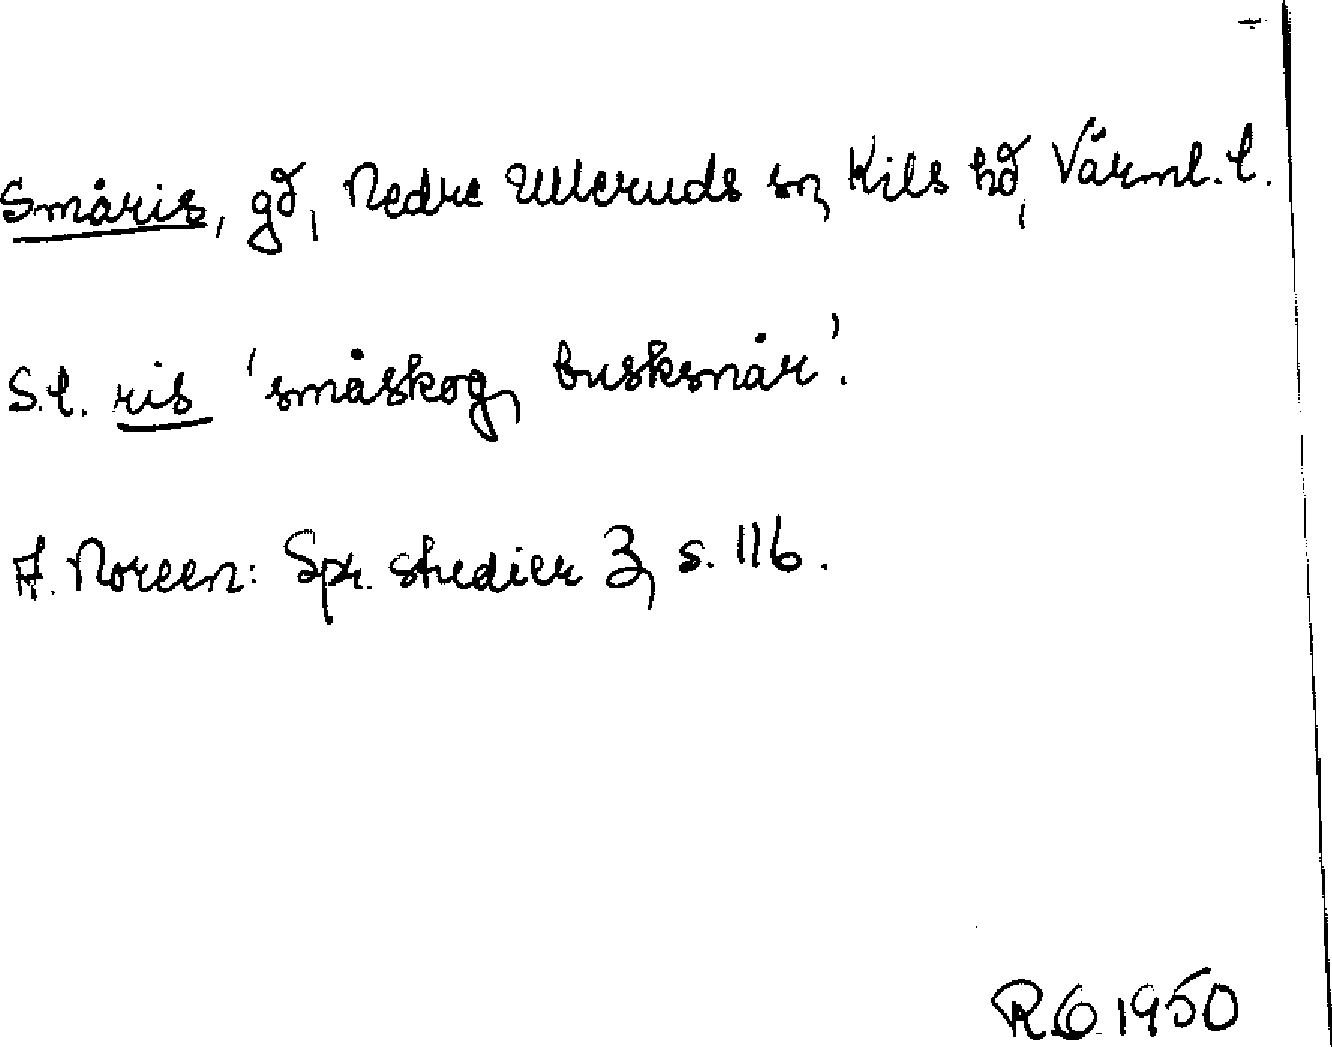 Småris, gd, Nedre Ulleruds sn, Kils hd, Värml. l.
S.l. ris 'småskog, busksnår'.
A. Noreen: Spr. studier 3, s. 116.
RO 1950